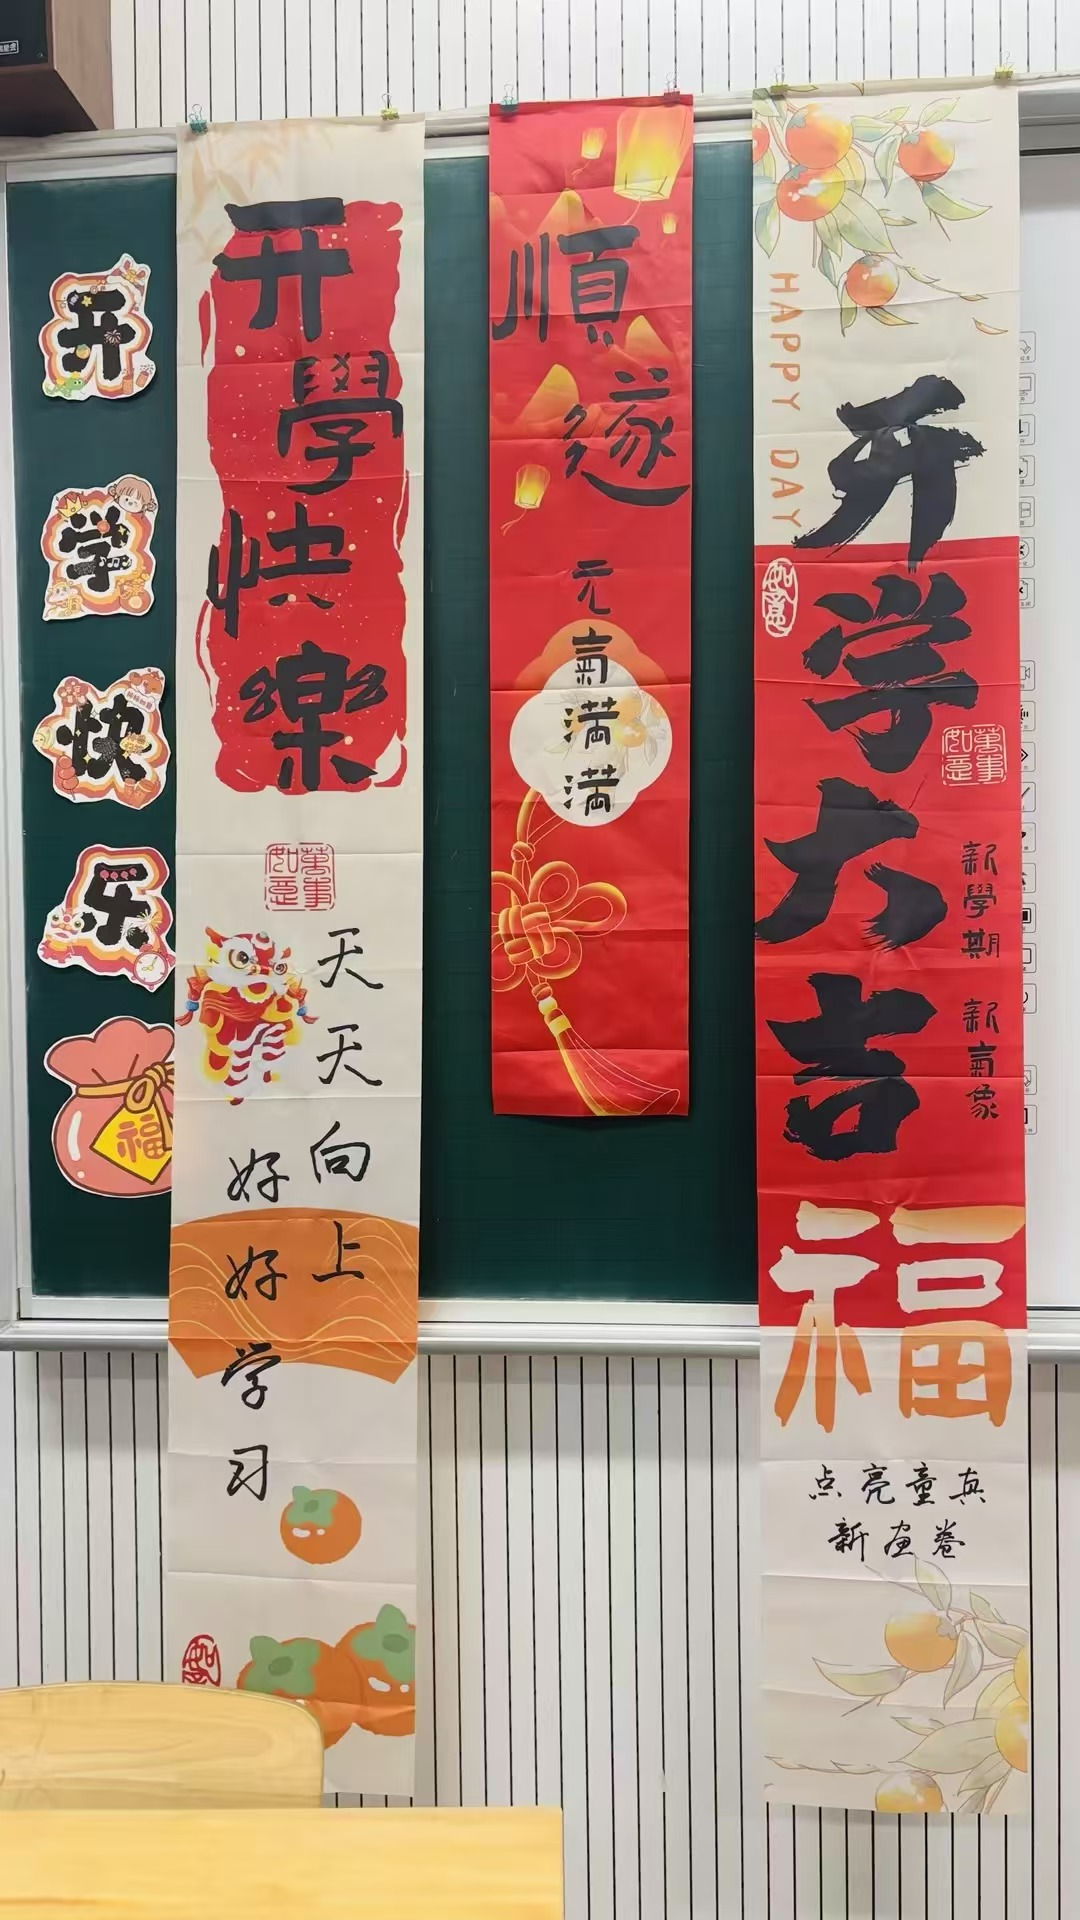 开学快乐
福
开學快樂
萬事如意
天天向上
好好学习
如意
順遂
元氣满满
HAPPY DAY
开学大吉
如意
萬事如意
新學期 新氣象
福
点亮童真
新画卷